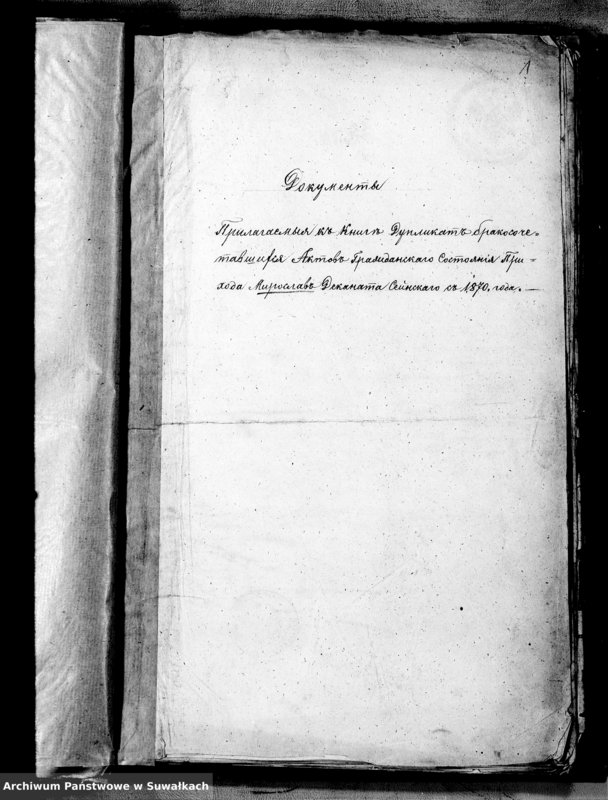 1
Документы
Прилагаемыя къ Книгѣ Дупликатъ бракосоче-
тавшихся Актовъ Гражданскаго Состоянія При-
хода Мирославъ Деканата Сейнскаго съ 1870. года. —
Archiwum Państwowe w Suwałkach